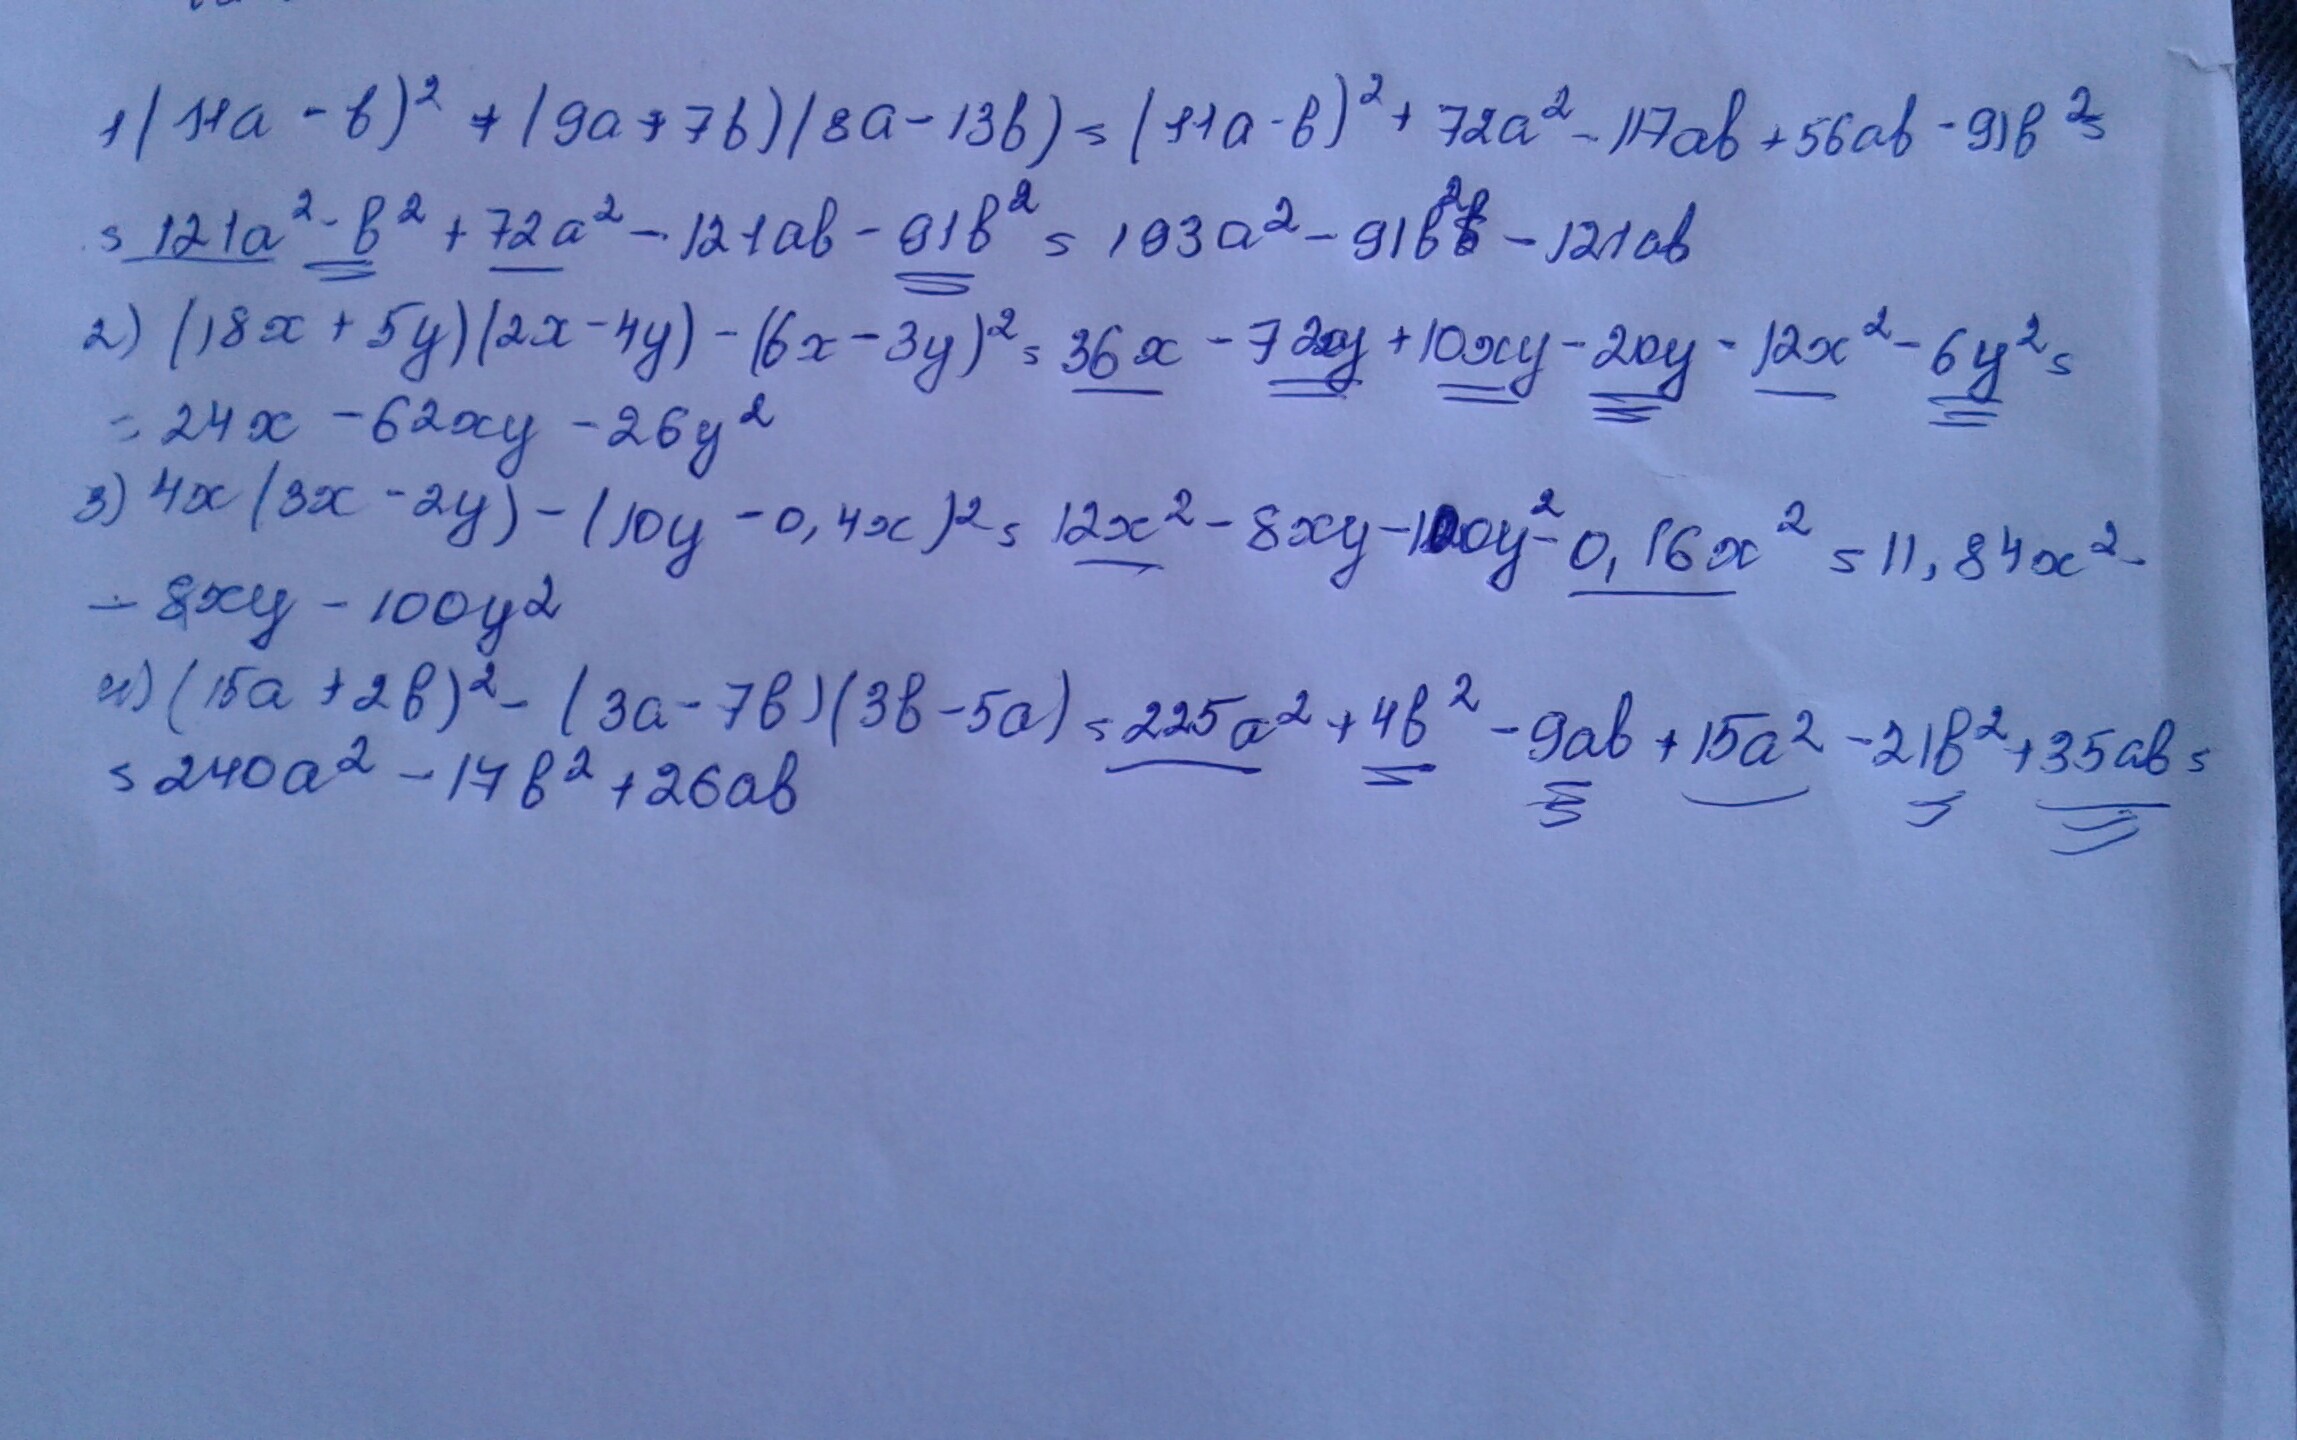 1) (11a - b)² + (9a + 7b)(8a - 13b) = (11a - b)² + 72a² - 117ab + 56ab - 91b² =
= 121a² - b² + 72a² - 121ab - 91b² = 193a² - 91b² - 121ab
2) (18x + 5y)(2x - 4y) - (6x - 3y)² = 36x - 72xy + 10xy - 20y - 12x² - 6y² =
= 24x - 62xy - 26y²
3) 4x(3x - 2y) - (10y - 0,4x)² = 12x² - 8xy - 100y² - 0,16x² = 11,84x² -
- 8xy - 100y²
4) (15a + 2b)² - (3a - 7b)(3b - 5a) = 225a² + 4b² - 9ab + 15a² - 21b² + 35ab =
= 240a² - 17b² + 26ab